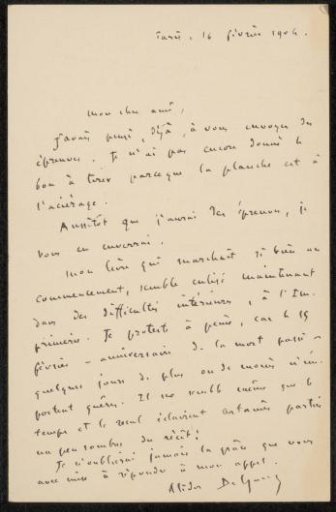 Paris, 16 février 1904.
Mon cher ami,
J'avais pensé, déjà, à vous envoyer des
épreuves. Je n'ai pas encore donné le
bon à tirer parce que la planche est à
l'aciérage.
Aussitôt que j'aurai des épreuves, je
vous en enverrai.
Mon livre qui marchait si bien au
commencement, semble enlisé maintenant
dans des difficultés intérieures, à l'Im-
primerie. Je proteste à peine, car le 15
février - anniversaire de la mort passé -
quelques jours de plus ou de moins n'im-
portent guère. Il me semble même que le
temps et le recul éclairent certaines parties
un peu sombres du récit.
Je n'oublierai jamais la grâce que vous
avez mise à répondre à mon appel.